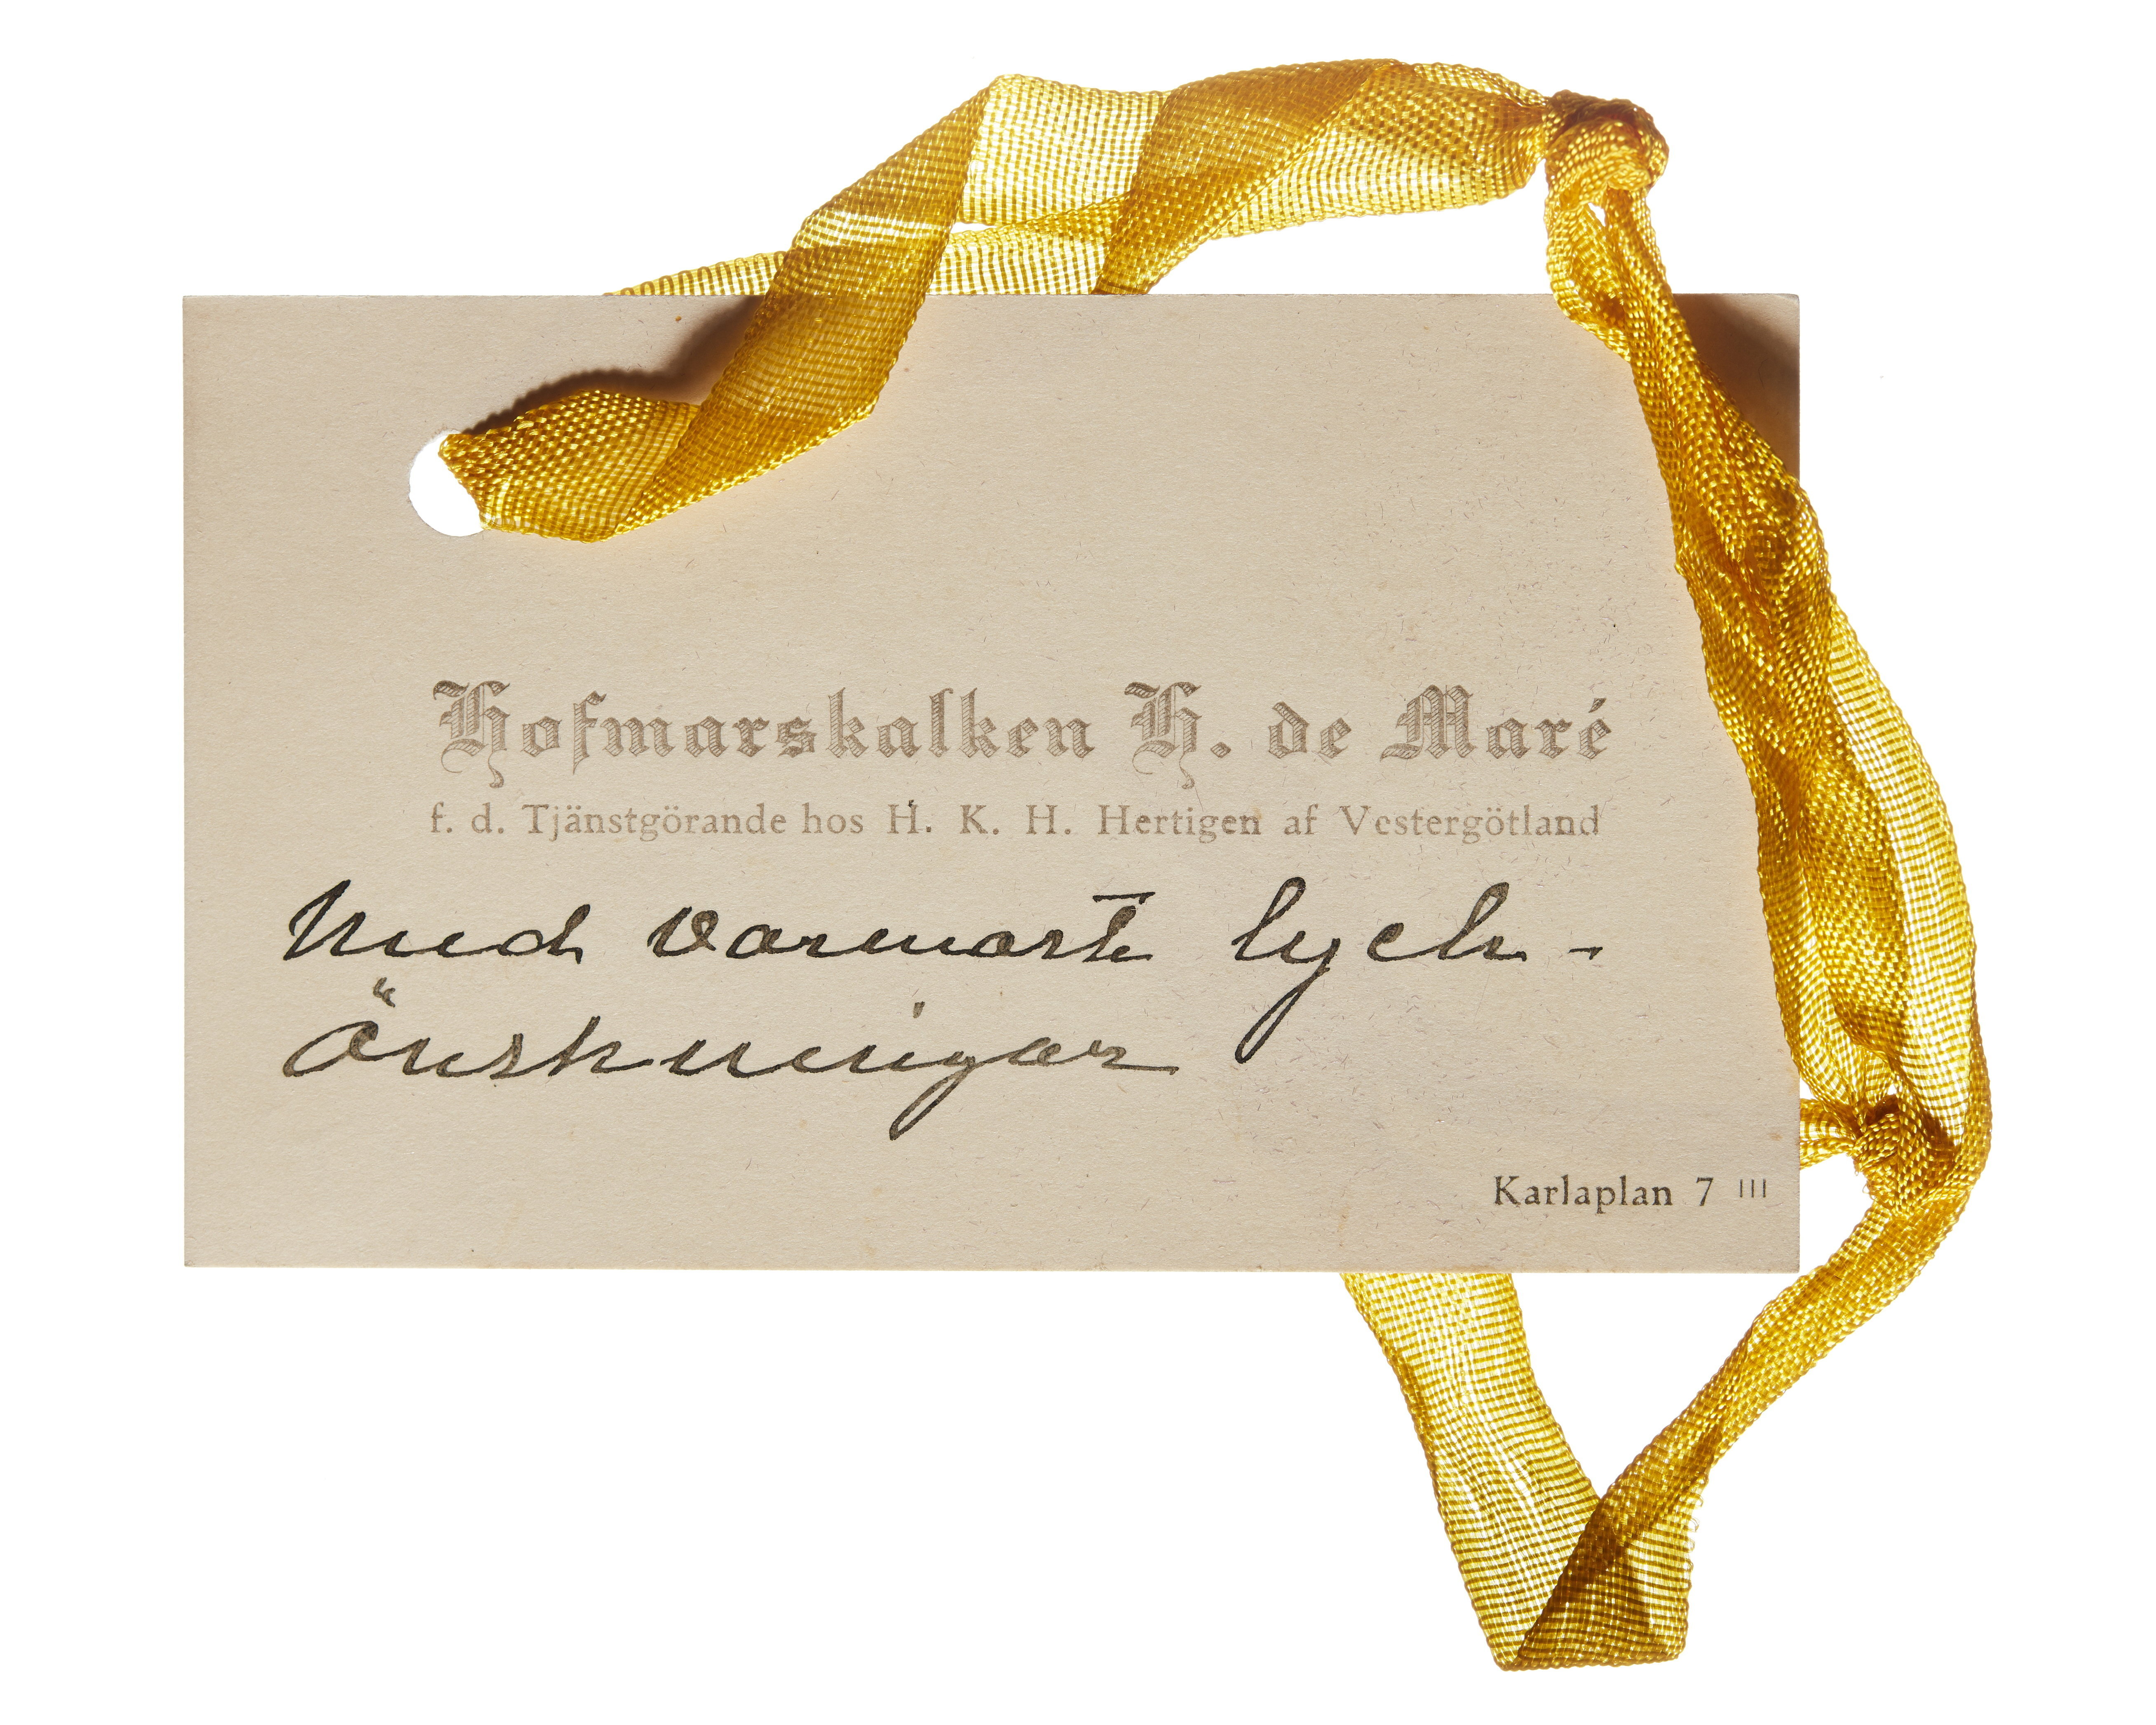 Hofmarskalken H. de Maré
f. d. Tjänstgörande hos H. K. H. Hertigen af Vestergötland
Med varmaste lyck-
önskningar
Karlaplan 7 III